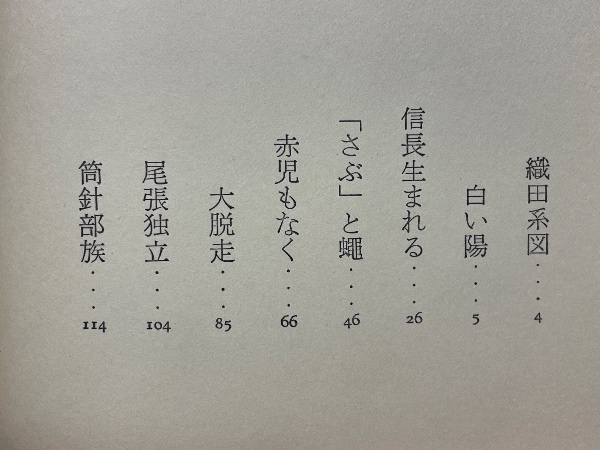 織田系図・・・4
白い陽・・・5
信長生まれる・・・26
「さぶ」と蠅・・・46
赤児もなく・・・66
大脱走・・・85
尾張独立・・・104
筒針部族・・・114